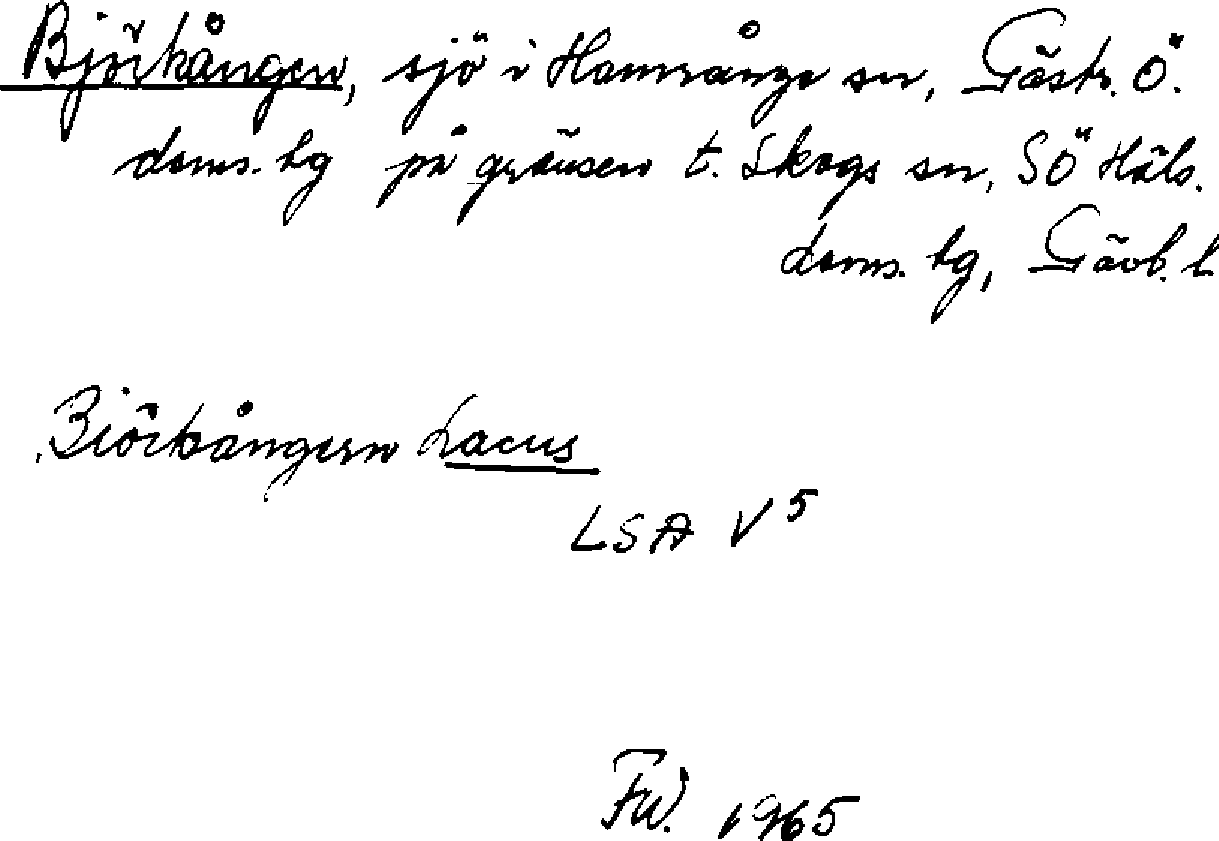 Björkången, sjö i Hamrånge sn, Gästr. Ö.
doms. hg på gränsen t. Skogs sn, SÖ Häls.
doms. hg, Gävb. l
Biörkångern Lacus
LSA V 5
FW. 1965